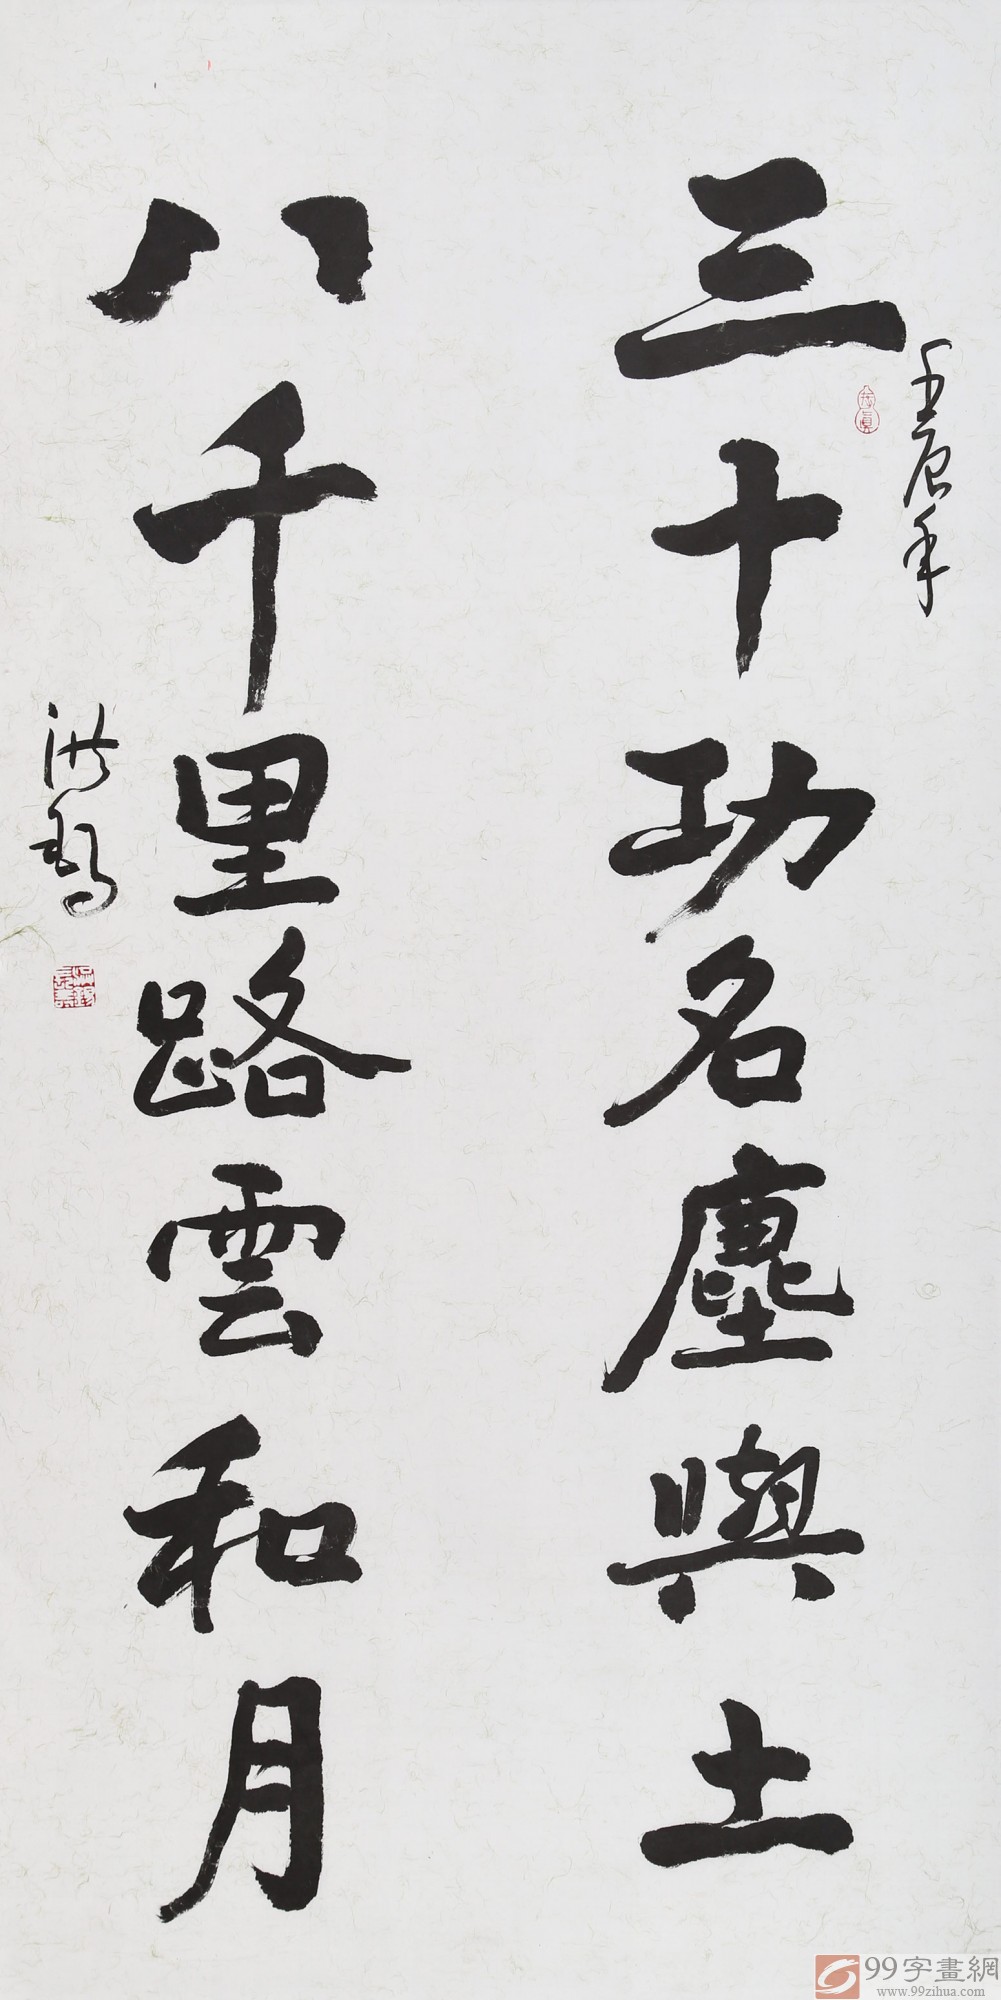 壬辰年
三十功名塵與土
八千里路雲和月
99字畫網
www.99zihua.com